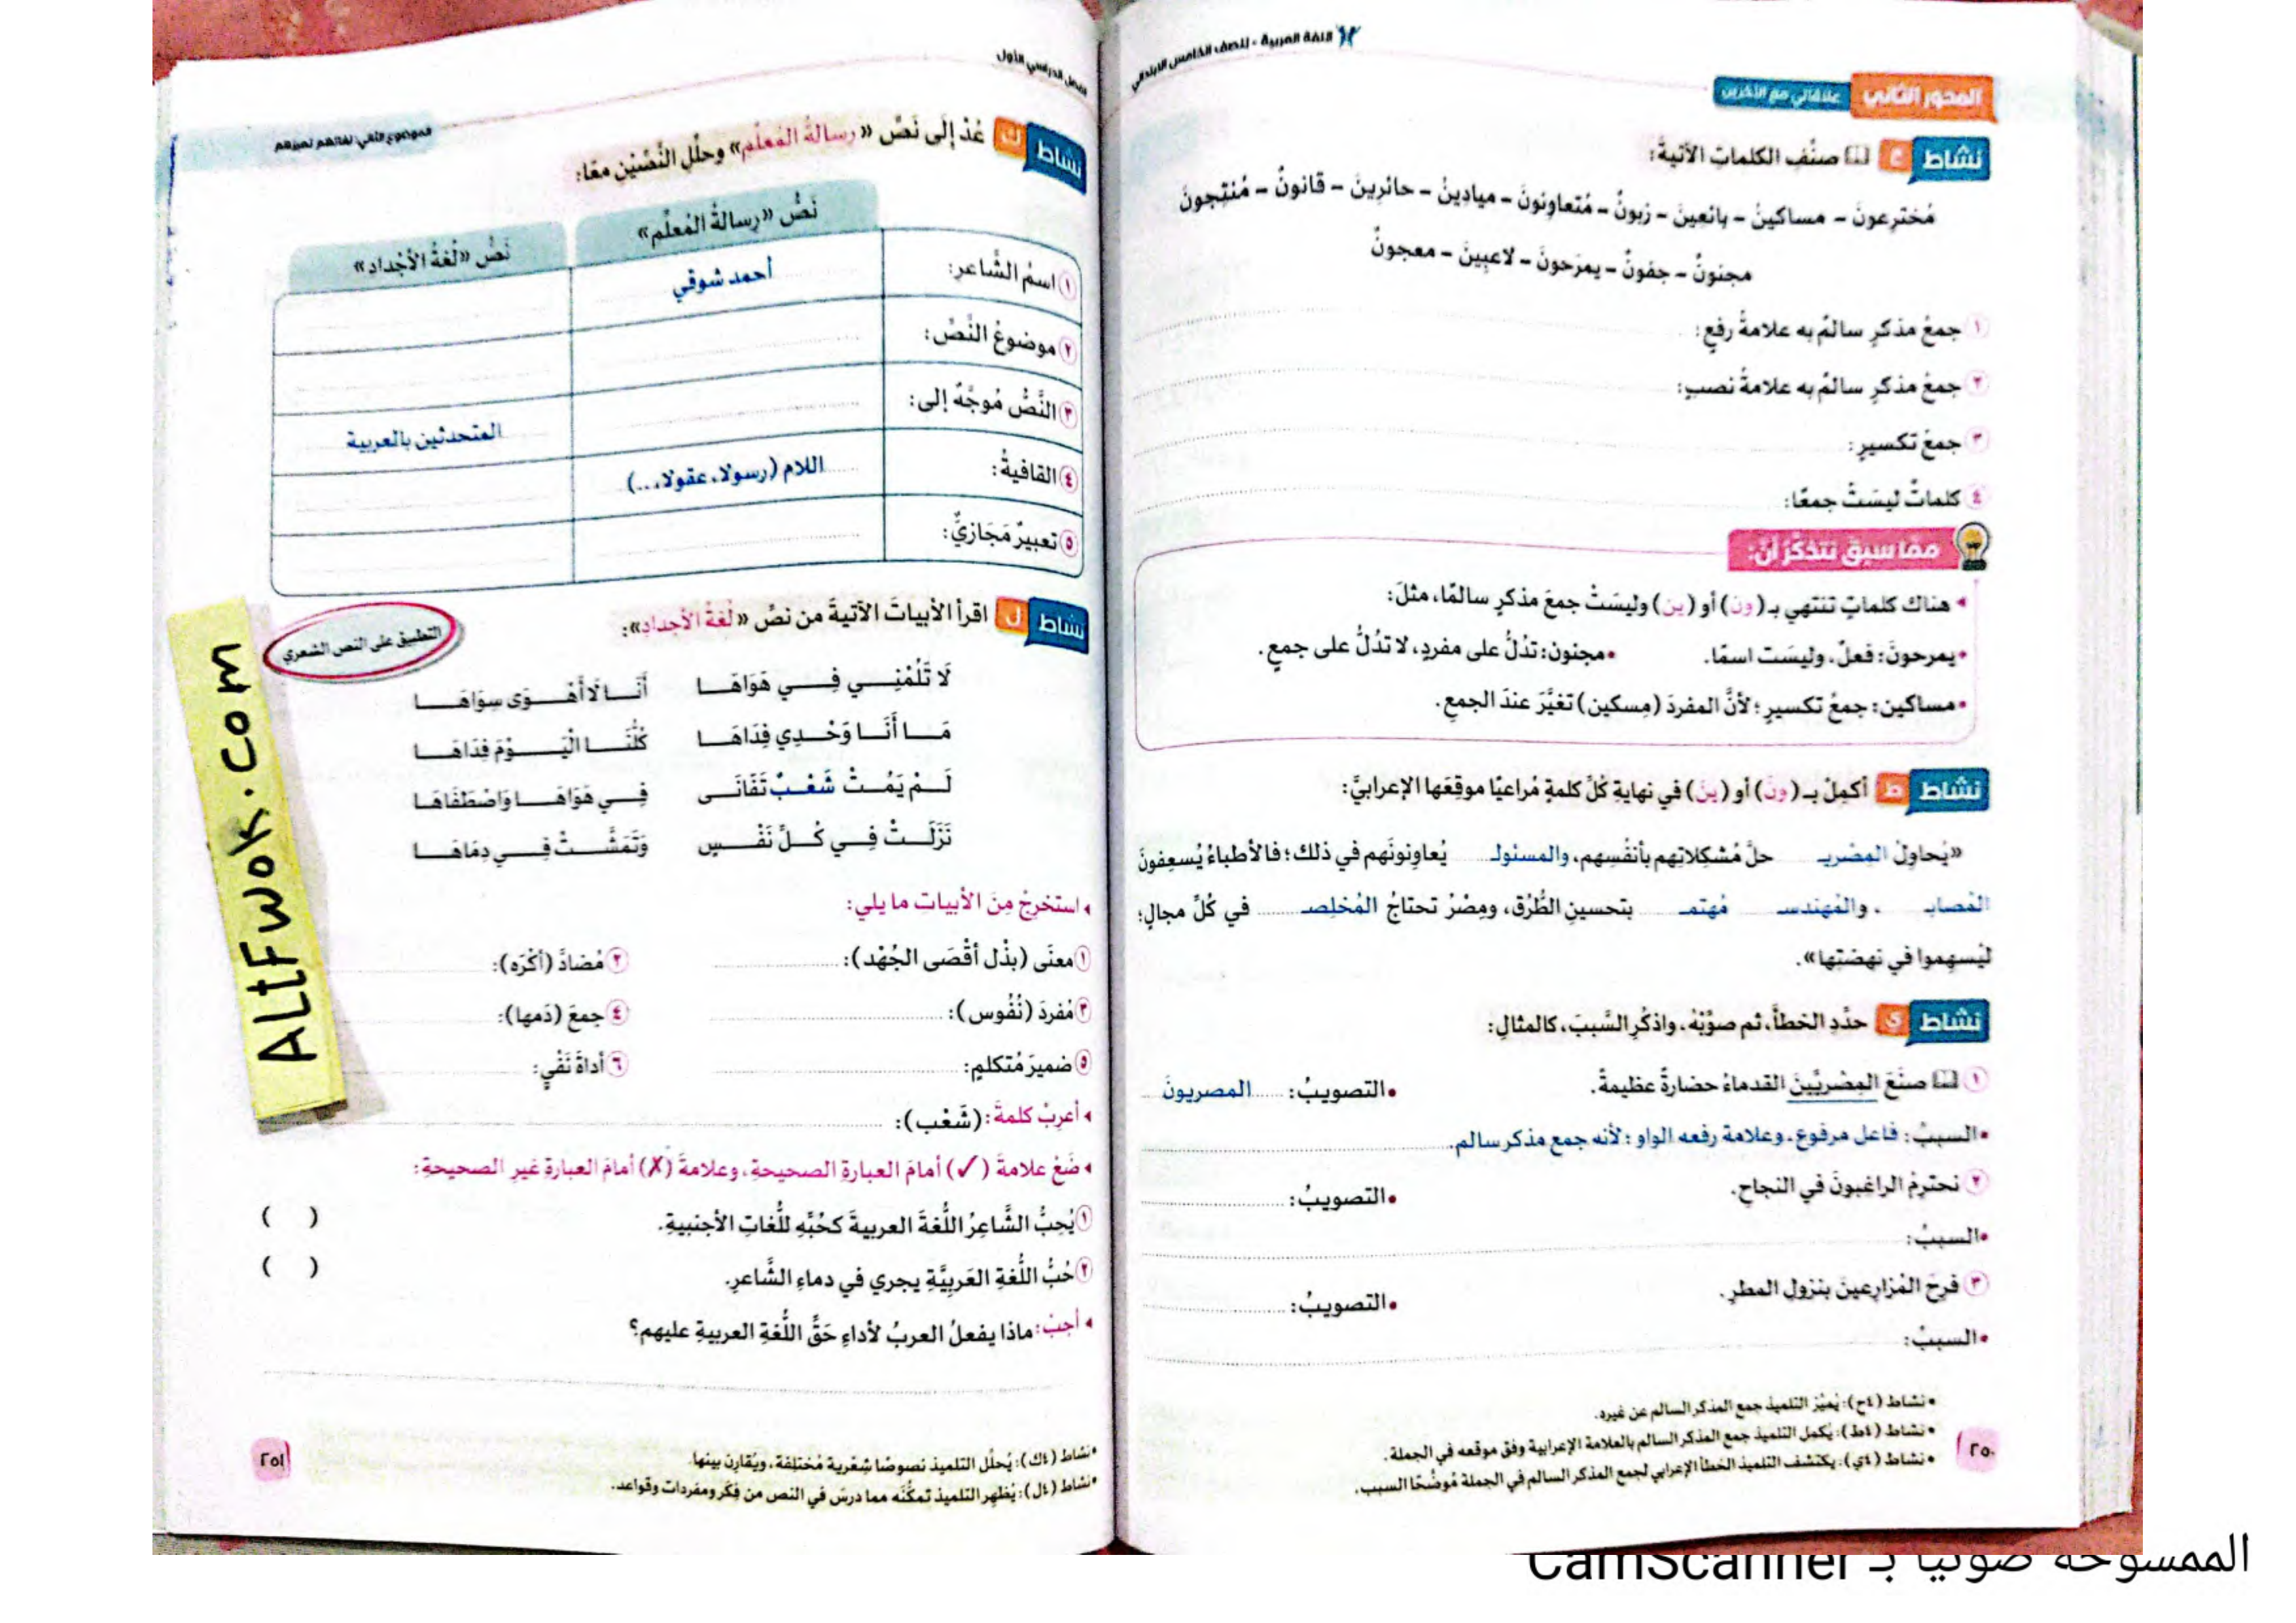 اللغة العربية - للصف الخامس الابتدائي
المحور الثاني علاقاتي مع الآخرين
نشاط ح صنِّفِ الكلماتِ الآتيةَ:
مُخترِعونَ - مساكينُ - بائعينَ - زبونٌ - مُتعاوِنونَ - ميادينُ - حائرِينَ - قانونٌ - مُنتِجونَ
مجنونٌ - جفونٌ - يمرَحونَ - لاعبِينَ - معجونٌ
١ جمعُ مذكرٍ سالمٌ به علامةُ رفعٍ:
٢ جمعُ مذكرٍ سالمٌ به علامةُ نصبٍ:
٣ جمعُ تكسيرٍ:
٤ كلماتٌ ليسَتْ جمعًا:
ممَّا سبق نتذكَّرُ أنَّ:
هناك كلماتٍ تنتهي بـ (ونَ) أو (ينَ) وليسَتْ جمعَ مذكرٍ سالمًا، مثلَ:
• يمرحونَ: فعلٌ، وليسَت اسمًا. • مجنون: تدُلُّ على مفردٍ، لا تدُلُّ على جمعٍ.
• مساكين: جمعُ تكسيرٍ؛ لأنَّ المفردَ (مِسكين) تغيَّرَ عندَ الجمعِ.
نشاط ط أكمِلْ بـ (ونَ) أو (ينَ) في نهايةِ كُلِّ كلمةٍ مُراعيًا موقِعَها الإعرابيَّ:
«يُحاوِلُ المِصْريـ حلَّ مُشكِلاتِهم بأنفُسِهم، والمسئولـ يُعاوِنونَهم في ذلك؛ فالأطباءُ يُسعِفونَ
المُصابـ ، والمُهندسـ مُهتمـ بتحسينِ الطُّرُق، ومِصْرُ تحتاجُ المُخلِصـ ........ في كُلِّ مجالٍ؛
ليُسهِموا في نهضَتِها».
نشاط ي حدِّدِ الخطأَ، ثم صوِّبْهُ، واذكُرِ السَّببَ، كالمثالِ:
١ صنَعَ المِصْريِّينَ القدماءُ حضارةً عظيمةً. • التصويبُ: المصريونَ
• السببُ: فاعل مرفوع، وعلامة رفعه الواو؛ لأنه جمع مذكر سالم.
٢ نحترِمُ الراغبونَ في النجاحِ. • التصويبُ:
• السببُ:
٣ فرِحَ المُزارِعينَ بنزولِ المطرِ. • التصويبُ:
• السببُ:
• نشاط (٤ح): يُميِّز التلميذ جمع المذكر السالم عن غيره.
• نشاط (٤ط): يُكمِل التلميذ جمع المذكر السالم بالعلامة الإعرابية وفق موقعه في الجملة.
• نشاط (٤ي): يكتشف التلميذ الخطأ الإعرابي لجمع المذكر السالم في الجملة مُوضِّحًا السبب.
٢٥٠
الفصل الدراسي الأول
الموضوع الثاني: لغاتهم تميزهم
نشاط ك عُدْ إلَى نَصِّ «رسالةُ المُعلِّمِ» وحلِّلِ النَّصَّيْنِ معًا:
نَصُّ «رِسالةُ المُعلِّمِ» نَصُّ «لُغةُ الأجْدادِ»
١ اسمُ الشَّاعرِ: أحمد شوقي
٢ موضوعُ النَّصِّ:
٣ النَّصُّ مُوجَّهٌ إلى: المتحدثين بالعربية
٤ القافيةُ: اللام (رسولا، عقولا، ...)
٥ تعبيرٌ مَجَازيٌّ:
نشاط ل اقرأ الأبياتَ الآتيةَ من نصِّ «لُغةُ الأجدادِ»:
التطبيق على النص الشعري
لَا تَلُمْنِـي فِـي هَوَاهَـا أَنَـا لَا أَهْـوَى سِوَاهَـا
مَـا أَنَـا وَحْـدِي فِدَاهَـا كُلُّنَـا الْيَـوْمَ فِدَاهَـا
لَـمْ يَمُـتْ شَعْـبٌ تَفَانَـى فِـي هَوَاهَـا وَاصْطَفَاهَا
نَزَلَـتْ فِـي كُـلِّ نَفْـسٍ وَتَمَشَّـتْ فِـي دِمَاهَـا
استخرِجْ مِنَ الأبيات ما يلي:
١ معنَى (بذْل أقْصَى الجُهْد): ٢ مُضادَّ (أكْرَه):
٣ مُفردَ (نُفُوس): ٤ جمعَ (دَمها):
٥ ضميرَ مُتكلمٍ: ٦ أداةَ نَفْيٍ:
أعرِبْ كلمةَ: (شَعْب):
ضَعْ علامةَ (✓) أمامَ العبارةِ الصحيحةِ، وعلامةَ (✗) أمامَ العبارةِ غيرِ الصحيحةِ:
١ يُحِبُّ الشَّاعِرُ اللُّغةَ العربيةَ كحُبِّهِ للُّغاتِ الأجنبيةِ. ( )
٢ حُبُّ اللُّغةِ العَربِيَّةِ يجري في دماءِ الشَّاعرِ. ( )
أجِبْ: ماذا يفعلُ العربُ لأداءِ حَقِّ اللُّغةِ العربيةِ عليهم؟
• نشاط (٤ك): يُحلِّل التلميذ نصوصًا شِعْرية مُختلِفة، ويُقارِن بينها.
• نشاط (٤ل): يُظهِر التلميذ تمكُّنَه مما درسَ في النص من فِكَر ومفردات وقواعد.
٢٥١
ALtFwok.com
الممسوحة ضوئيا بـ CamScanner